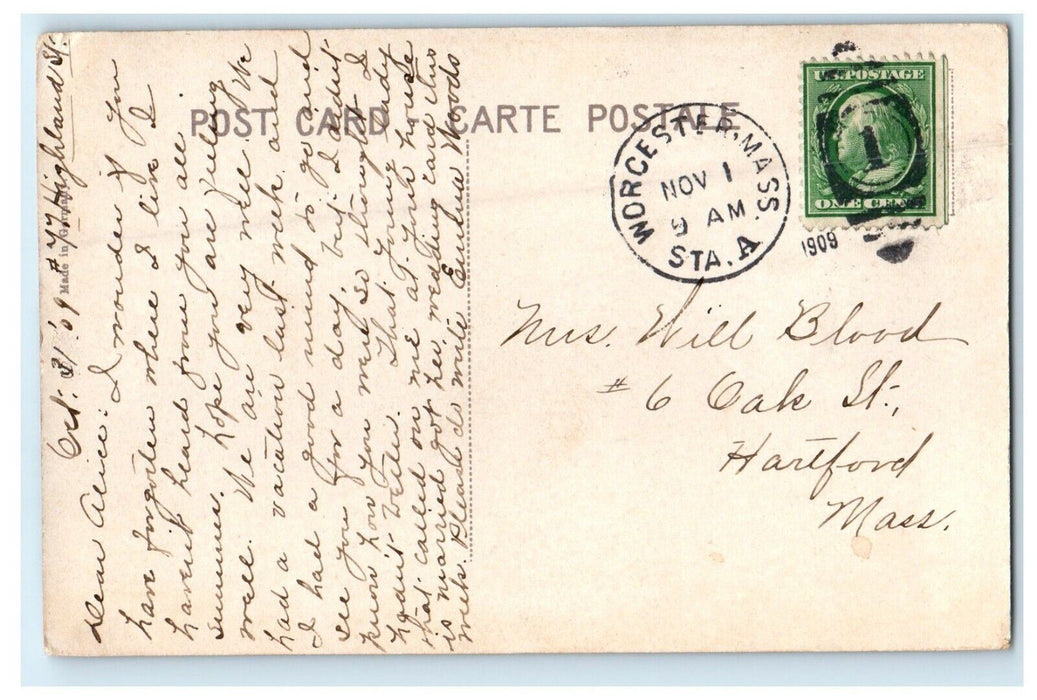 POST CARD CARTE POSTALE
Made in Germany
U.S. POSTAGE
1
ONE CENT
WORCESTER, MASS.
NOV 1
9 AM
STA. A
1909
Mrs. Will Blood
# 6 Oak St.,
Hartford
Mass.
#77 Highland St.
Oct. 31 '09
Dear Alice: I wonder if you
have forgotten where I live I
havent heard from you all
summer. We hope you are feeling
well. We are very well. We
had a vacation last week and
I had a good mind to go and
see you for a day, but I didnt
know how you were so thought I
hadnt better. That young lady
that called on me at your house
is married got her wedding card this
week. Please do write Eunice Woods